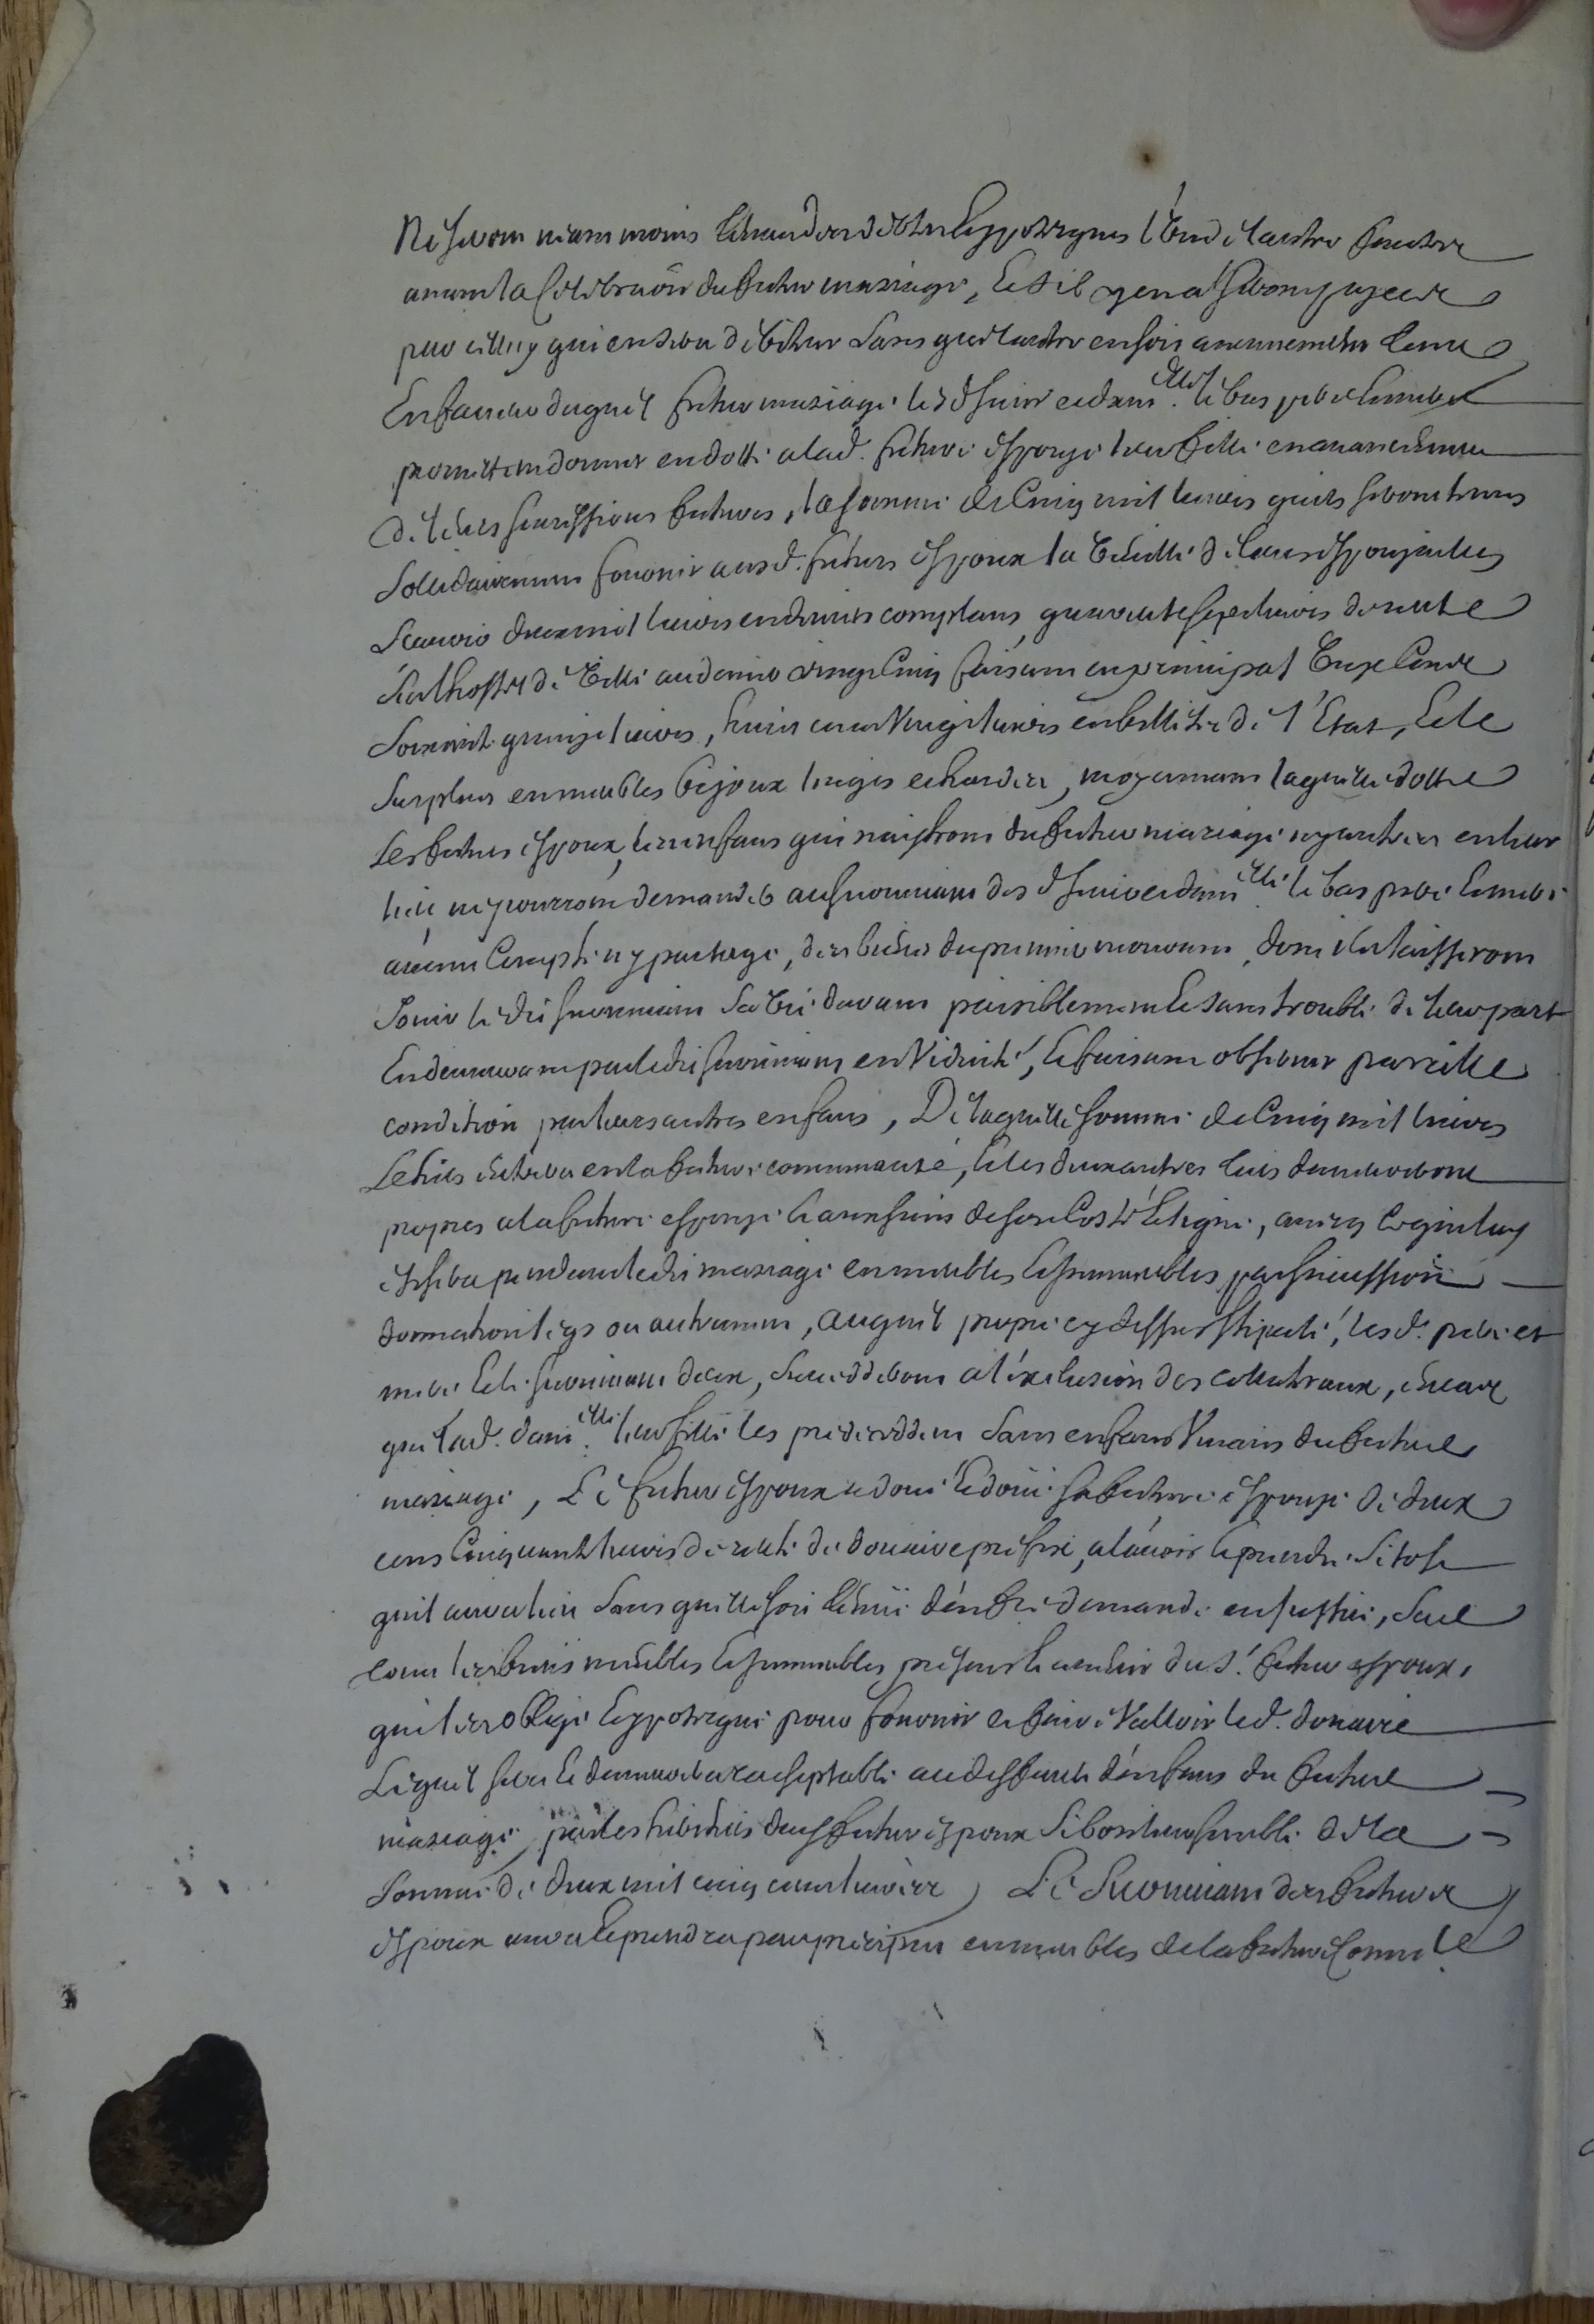 Ne seront neanmoins tenus des debtes et hypotegues l'un de l'autre faictes
avant la celebraõn du futur mariage, Et s'il y en a seront payées
par celluy qui en sera debiteur sans que l'autre en soit aucunement tenu
En faveur duquel futur mariage lesd. Sieur et dam.elle le bas pere et mere
promettent donner en dotte a lad. future espouze leur fille en avancement
de leurs successions futures, la somme de Cinq mil livres qu'ils seront tenus
solidairement fournir ausd. futurs espoux la veille de leurs espouzailles
Scavoir deux mil livres en deniers comptans, quarante sept livres de rente
sur l'hostel de Ville au denier vingt Cinq faisant en principal unze Cent
soixante quinze livres, huict cens vingt livres en billets de l'Estat, Et le
surplus en meubles bijoux linges et hardes, moyennant laquelle dotte
Les futurs espoux, les enfans qui naistront du futur mariage ny autres en leur
lieu ne pourront demander au survivant des d. Sieur et dam.elle le bas pere et mere
aucun Compte ny partage, des biens du premier mourant, dont ils laisseront
Jouir ledit survivant sa vie durant paisiblement et sans trouble de leur part
En demeurant par ledit survivant en viduité, Et faisant observer pareille
condition par leurs autres enfans, De laquelle somme de Cinq mil livres
Le tiers entrera en la future communauté, Et les deux autres tiers demeureront
propres a la future espouze Et aux siens de son Costé Et ligne, avecq Ce qui luy
eschera pendant ledit mariage en meubles Et immeubles par succession
donnation legs ou autrement, auquel propre cy dessus stipulé, lesd. pere et
mere Et le survivant deux, succedderont a l'exclusion des collateraux, en cas
que lad. dam.elle leur fille les predecedde sans enfans vivans du futur
mariage, Le futur espoux a doué Et doue sa future espouze de deux
cens Cinquante livres de rente de douaire prefix, a l'avoir Et prendre sitost
qu'il aura lieu sans qu'elle soit tenue d'en fre demande en justice, sur
tous les biens meubles Et immeubles presens Et avenir du s.r futur espoux,
qu'il en oblige Et hypotegue pour fournir et faire valloir led. douaire
Lequel sera Et demeurera racheptable au deffault d'enfans du futur
mariage, par les heritiers dud. futur espoux si bon leur semble de la
somme de deux mil cinq cens livres, Le survivant des futurs
espoux aura Et prendra par preciput en meubles de la future Comm.té